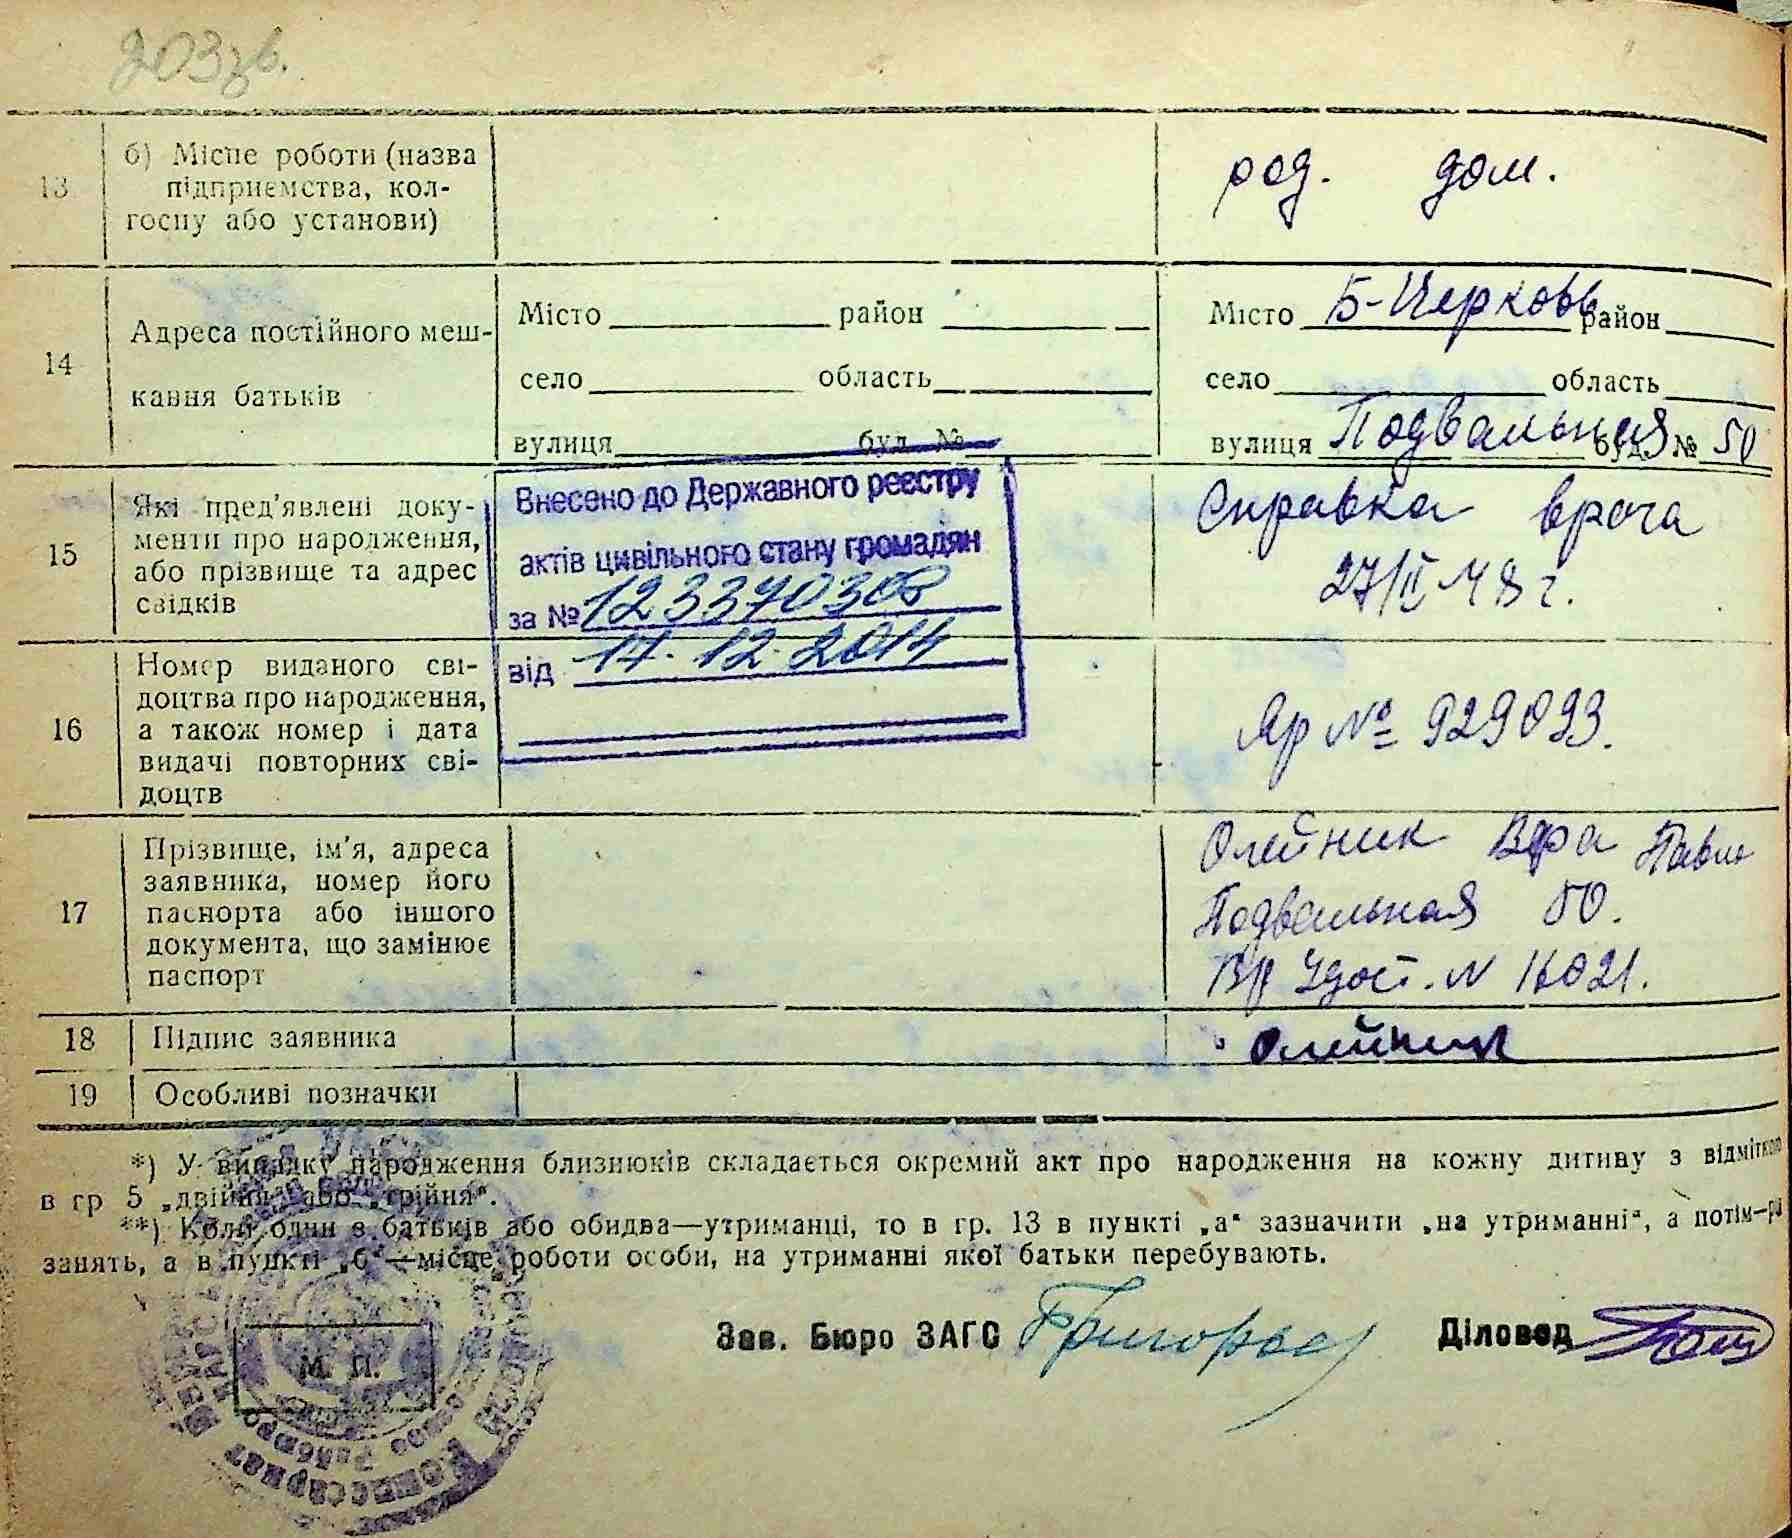 203зв.
13 б) Місце роботи (назва
підприємства, кол-
госпу або установи)
род. дом.
14 Адреса постійного меш-
кання батьків
Місто район
село область
вулиця буд. №
Місто Б-Церковь район
село область
вулиця Подвальная буд. № 50
15 Які пред'явлені доку-
менти про народження,
або прізвище та адрес
свідків
Внесено до Державного реєстру
актів цивільного стану громадян
за № 123370308
від 17.12.2014
Справка врача
27/II-48 г.
16 Номер виданого сві-
доцтва про народження,
а також номер і дата
видачі повторних сві-
доцтв
Яр № 929093.
17 Прізвище, ім'я, адреса
заявника, номер його
паспорта або іншого
документа, що замінює
паспорт
Олейник Вера Павл
Подвальная 50.
Вр Удост. N 16021.
18 Підпис заявника
Олейник
19 Особливі позначки
*) У випадку народження близнюків складається окремий акт про народження на кожну дитину з відміткою
в гр 5 „двійня" або „трійня".
**) Коли один з батьків або обидва—утриманці, то в гр. 13 в пункті „а" зазначити „на утриманні", а потім—рі
занять, а в пункті „б"—місце роботи особи, на утриманні якої батьки перебувають.
Зав. Бюро ЗАГС
Діловод
М. П.
Комиссариат